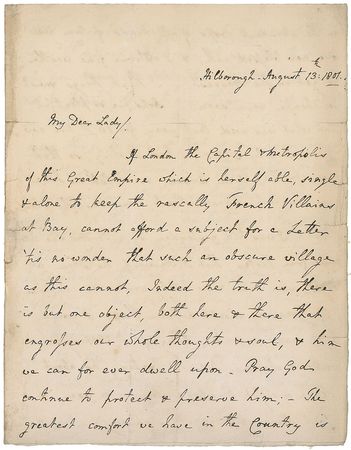 Hilborough - August 13th: 1801.
My Dear Lady/.
If London the Capital & Metropolis
of this Great Empire which is herself able, single
& alone to keep the rascally French Villains
at Bay, cannot afford a subject for a Letter
'tis no wonder that such an obscure village
as this cannot. Indeed the truth is, there
is but one object, both here & there that
engrosses our whole thoughts & soul, & him
we can for ever dwell upon - Pray God
continue to protect & preserve him; - The
greatest comfort we have in the Country is